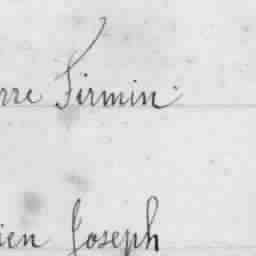 rre Firmin
ien Joseph